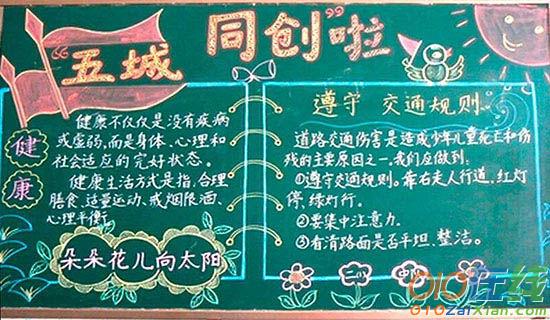 “五城同创”啦
健康
健康不仅仅是没有疾病
或虚弱,而是身体、心理和
社会适应的完好状态。
健康生活方式是指,合理
膳食、适量运动、戒烟限酒、
心理平衡。
朵朵花儿向太阳
遵守 交通规则。
道路交通伤害是造成少年儿童死亡和伤
残的主要原因之一。我们应做到:
①遵守交通规则。靠右走人行道,红灯
停,绿灯行。
②要集中注意力。
③看清路面是否平坦、整洁。
二(
中
010在线
010zaixian.com